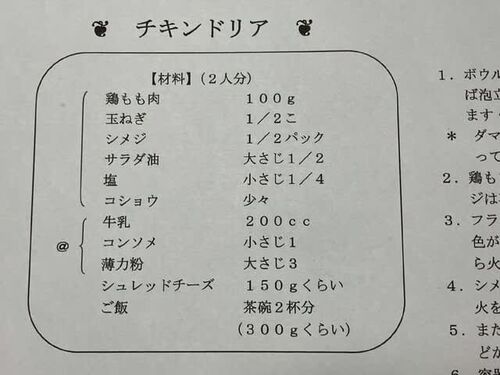 チキンドリア
【材料】（２人分）
鶏もも肉　１００ｇ
玉ねぎ　１／２こ
シメジ　１／２パック
サラダ油　大さじ１／２
塩　小さじ１／４
コショウ　少々
＠
牛乳　２００ｃｃ
コンソメ　小さじ１
薄力粉　大さじ３
シュレッドチーズ　１５０ｇくらい
ご飯　茶碗２杯分
（３００ｇくらい）
１．ボウル
ば泡立
ます
＊　ダマ
って
２．鶏も
ジは
３．フラ
色が
ら火
４．シメ
火を
５．また
どか